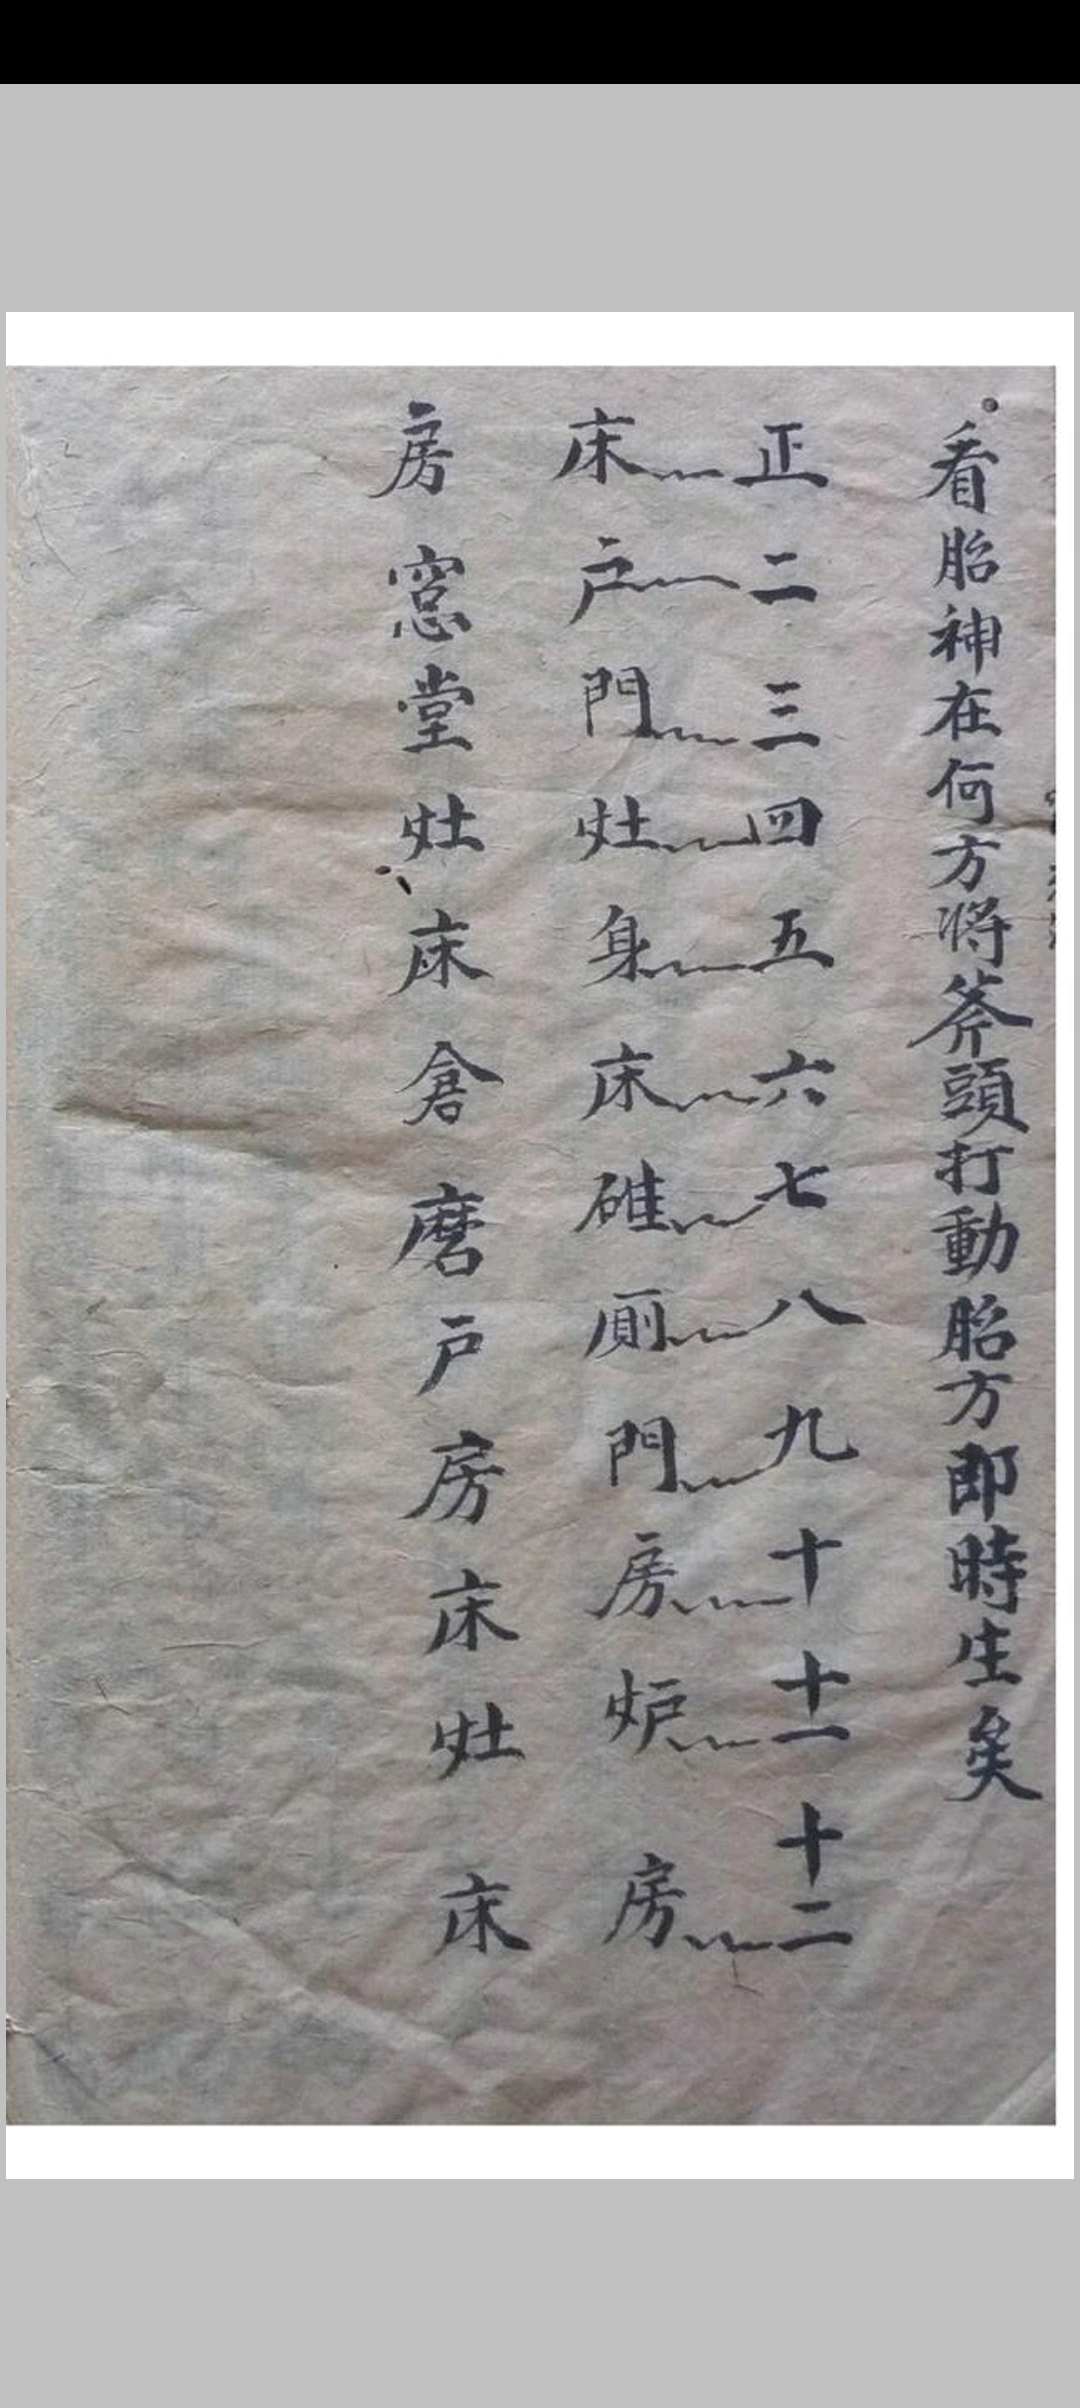 看胎神在何方将斧頭打動胎方即時生矣
正二三四五六七八九十十一十二
床户門灶身床碓厠門房炉房
房窓堂灶床倉磨户房床灶床